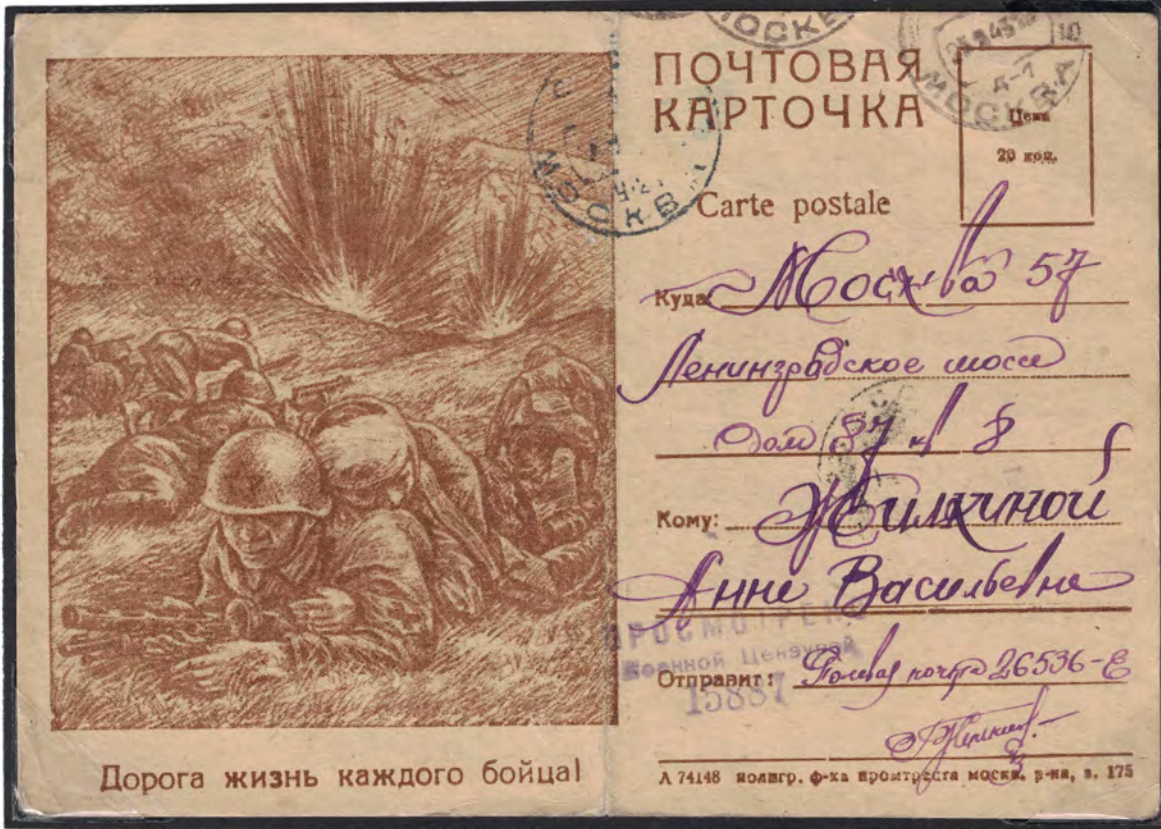 ПОЧТОВАЯ
КАРТОЧКА
Carte postale
Цена
20 коп.
МОСКВА
МОСКВА
МОСКВА
Куда: Москва 57
Ленинградское шоссе
Дом 57 кв 8
Кому: Жилкиной
Анне Васильевне
ПРОСМОТРЕНО
Военной Цензурой
15887
Отправит: Полевая почта 26536-Е
Дорога жизнь каждого бойца!
Л 74148 полигр. ф-ка промтреста моск. р-на, з. 175